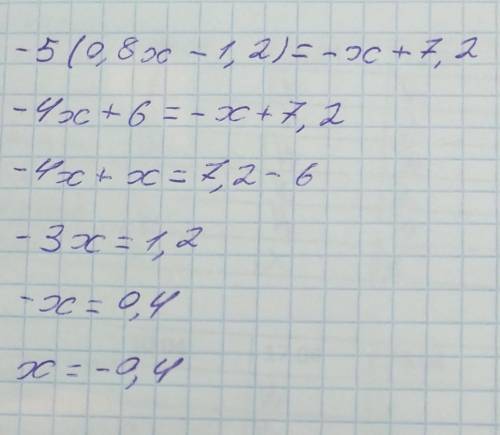 -5(0,8x - 1,2) = -x + 7,2
-4x + 6 = -x + 7,2
-4x + x = 7,2 - 6
-3x = 1,2
-x = 0,4
x = -0,4